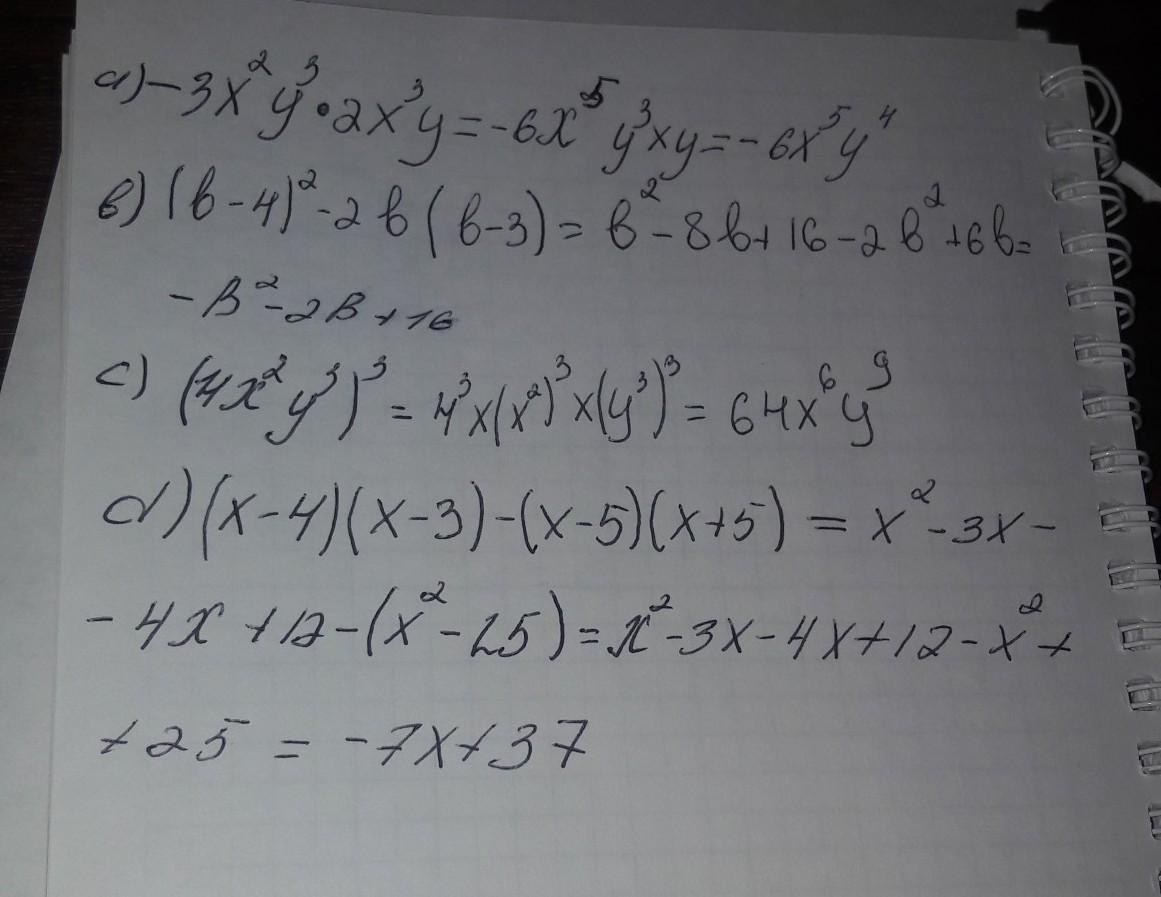 a) -3x²y³·2x³y=-6x⁵y³×y=-6x⁵y⁴
в) (в-4)²-2в(в-3)=в²-8в+16-2в²+6в=
-в²-2в+16
c) (4x²y³)³=4³×(x²)³×(y³)³=64x⁶y⁹
d) (x-4)(x-3)-(x-5)(x+5)=x²-3x-
-4x+12-(x²-25)=x²-3x-4x+12-x²+
+25=-7x+37